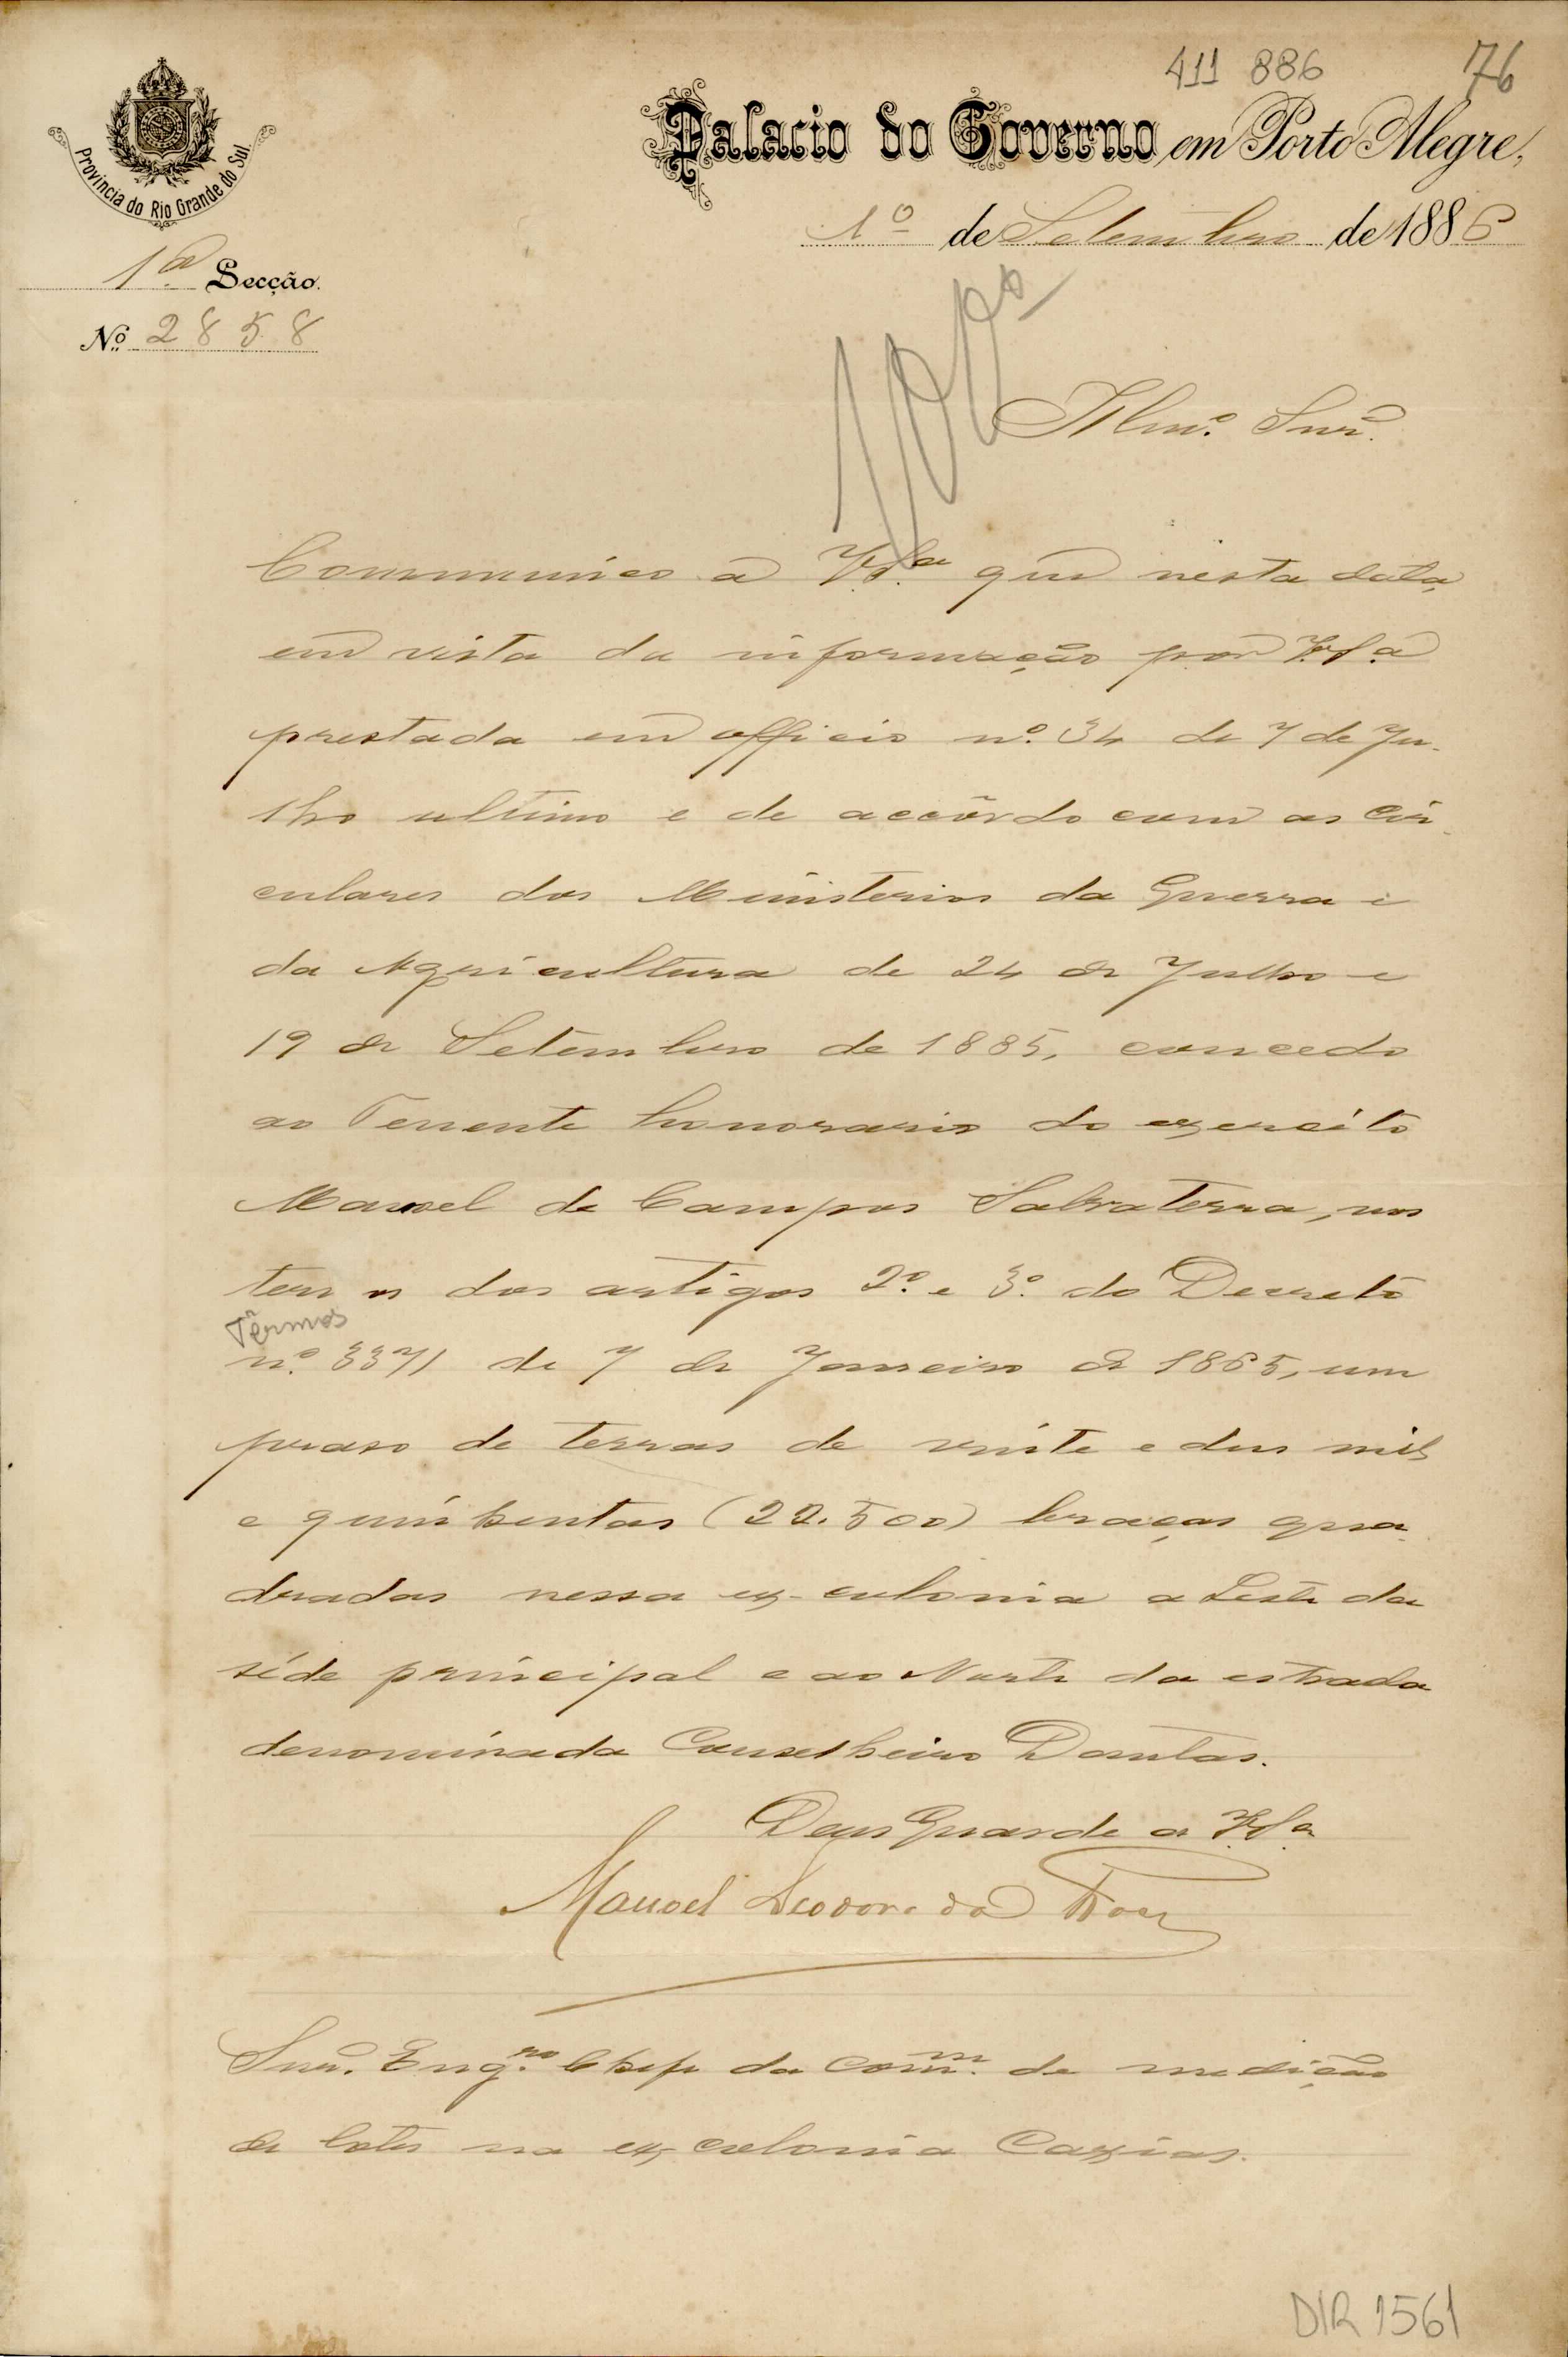 411 886 76
Palacio do Governo em Porto Alegre,
1º de Setembro de 1886
Provincia do Rio Grande do Sul
1ª Secção.
Nº 2858
Illmo. Snr.
Communico a V.Sª que nesta data,
em vista da informação por V.Sª
prestada em officio nº 34 de 7 de Ju-
lho ultimo e de accôrdo com as Cir-
culares dos Ministerios da Guerra e
da Agricultura de 24 de Julho e
19 de Setembro de 1885, concedo
ao Tenente honorario do exercito
Manoel de Campos Salvaterra, nos
ter os dos artigos 2º e 3º do Decreto
Têrmos
nº 3371 de 7 de Janeiro de 1865, um
praso de terras de vinte e dus mil
e quinhentas (22.500) braças qua-
dradas nessa ex-colonia a Leste da
séde principal e ao Norte da estrada
denominada Conselheiro Dantas.
Deus Guarde a V.Sª
Manoel Deodoro da Fonca
Snr. Engro. Chefe da Comm. de medição
de lotes na ex-colonia Caxias.
DIR 1561